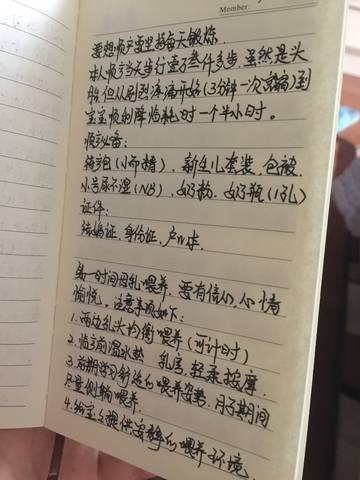 Member:
要想顺产要坚持每天锻炼.
本人顺产当天步行壹万叁仟多步,虽然是头
胎,但从剧烈疼痛开始(3分钟一次宫缩)到
宝宝顺利降临耗时一个半小时。
顺产必备:
待产包(小而精),新生儿套装,包被,
小号尿不湿(NB),奶粉,奶瓶(1孔)
证件:
结婚证,身份证,户口本.
第一时间母乳喂养,要有信心,心情
愉悦。注意事项如下:
1.两边乳头均衡喂养(可计时)
2.临产前温水热 乳房,轻柔按摩.
3.前期学习舒适的喂养姿势,月子期间
尽量侧躺喂养.
4.给宝宝提供安静的喂养环境.